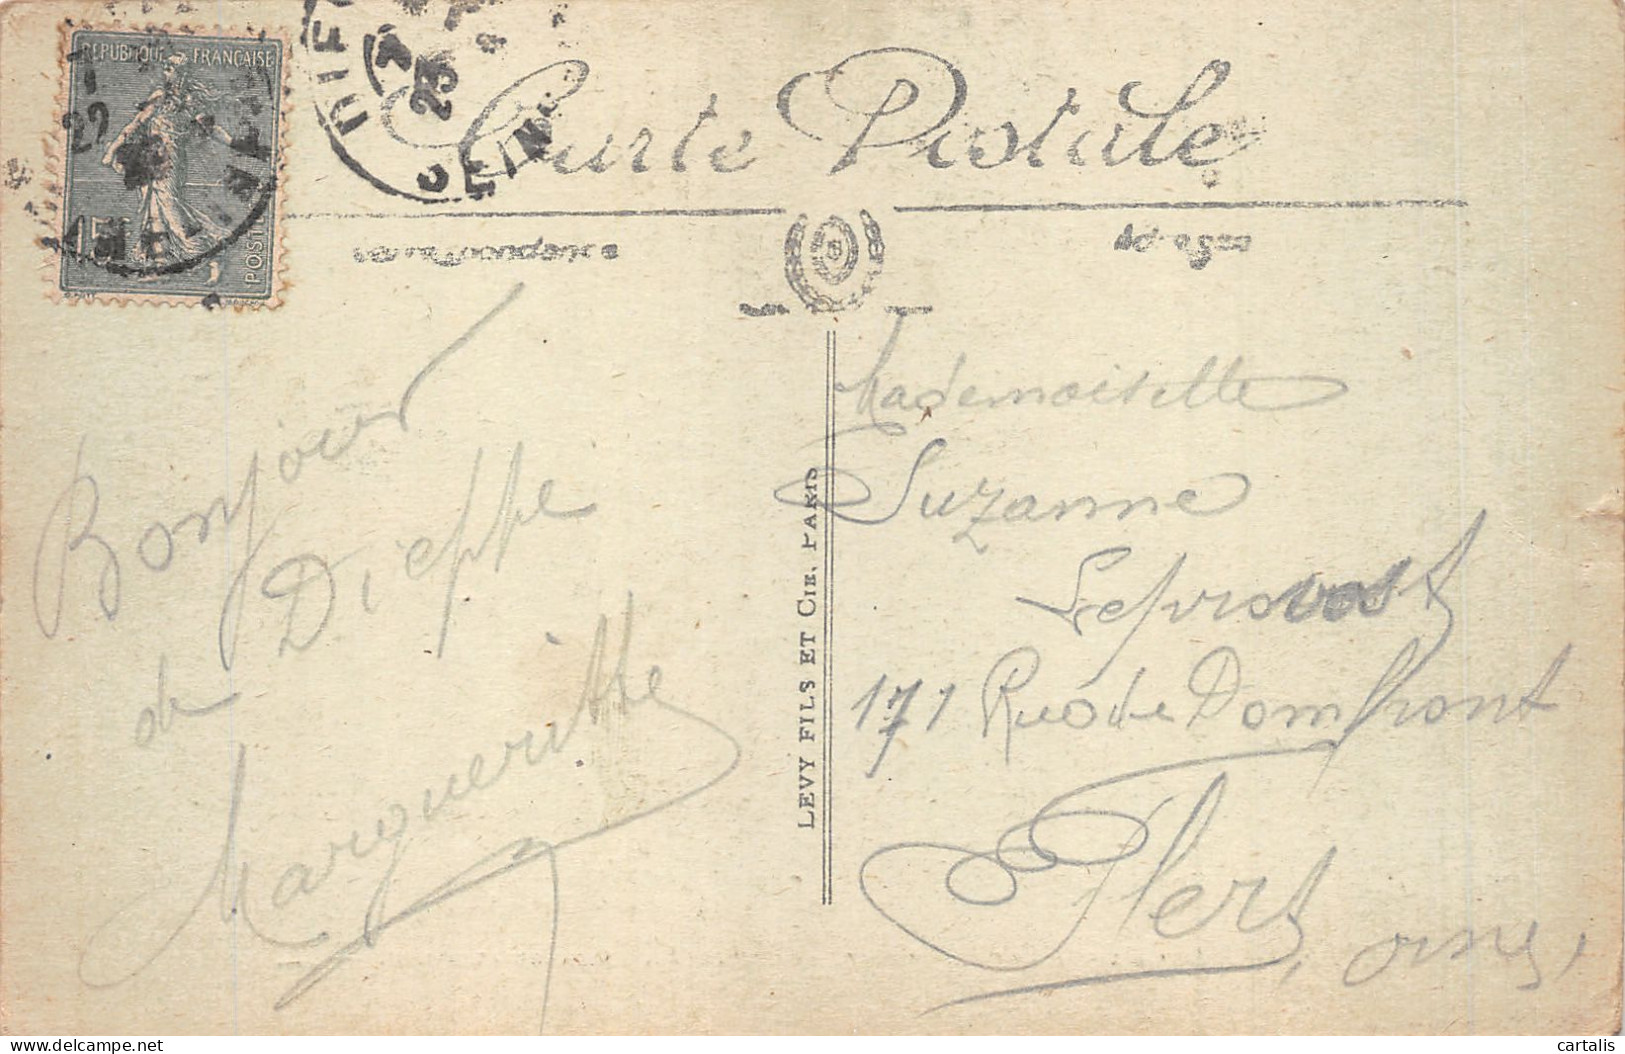 REPUBLIQUE FRANÇAISE
15
POSTES
Carte Postale
Correspondance
Adresse
Bonjour
de Dieppe
Margueritte
LEVY FILS ET CIE, PARIS
Mademoiselle
Suzanne
Leprovost
171 Rue de Domfront
Flers, orne,
cartalis
delcampe.net